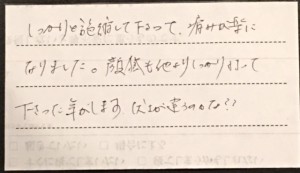 しっかりと施術して下さって、痛みが楽に
なりました。顔も他よりしっかり
下さった気がします 違うのかな??